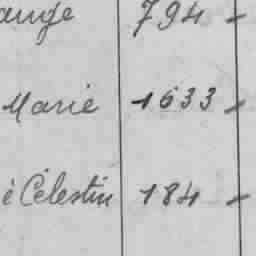 ange 794 -
Marie 1633 -
è Célestin 184 -